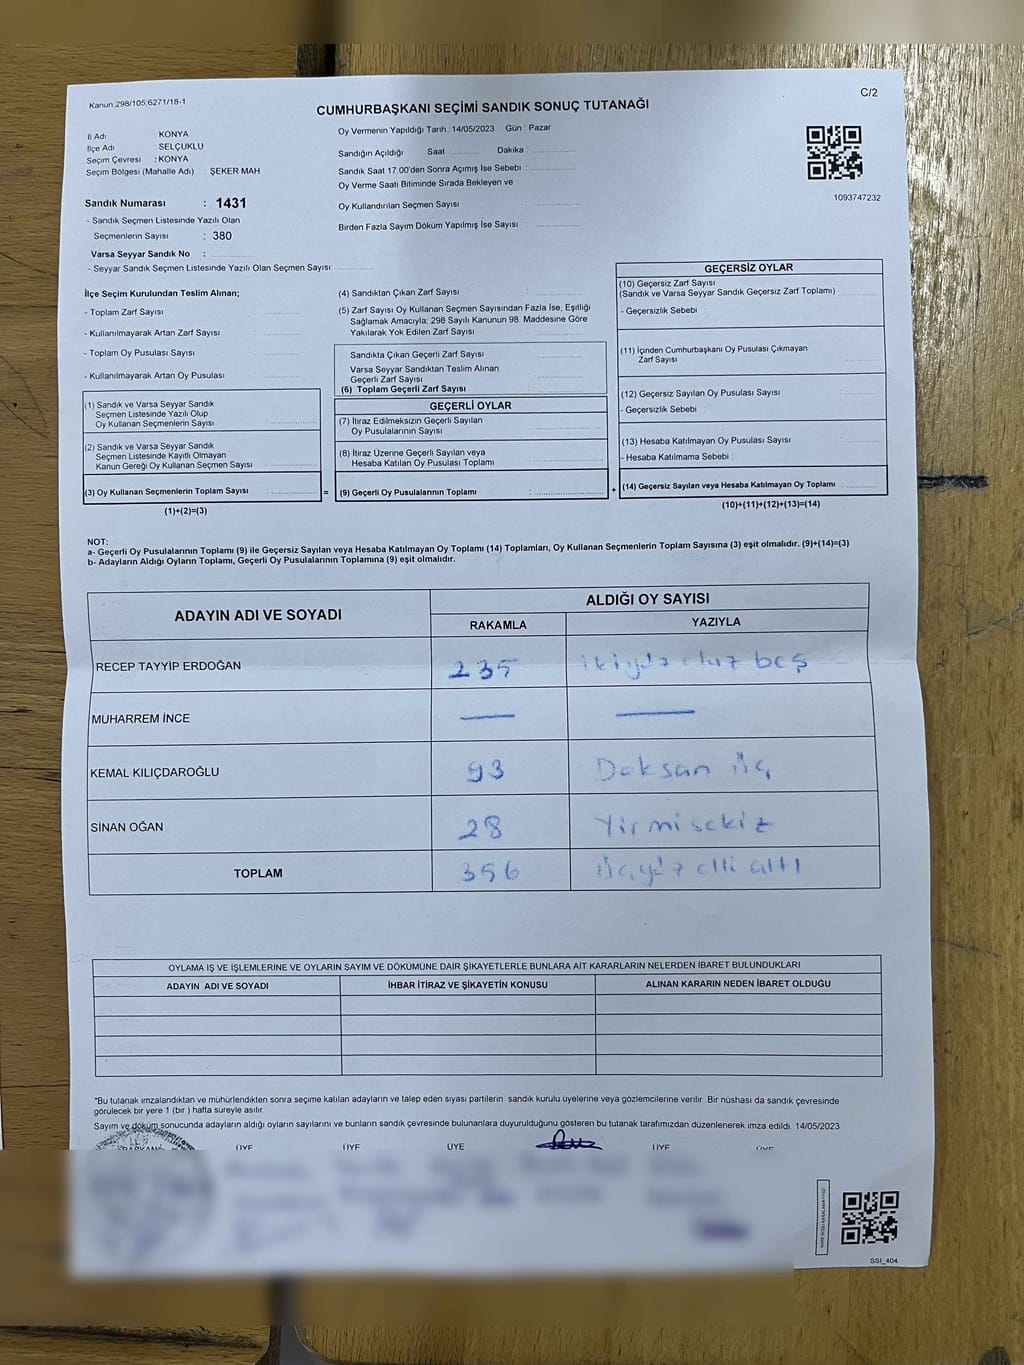 Kanun:298/105;6271/18-1
C/2
CUMHURBAŞKANI SEÇİMİ SANDIK SONUÇ TUTANAĞI
İl Adı : KONYA
İlçe Adı : SELÇUKLU
Seçim Çevresi : KONYA
Seçim Bölgesi (Mahalle Adı) : ŞEKER MAH
Oy Vermenin Yapıldığı Tarih : 14/05/2023 Gün : Pazar
Sandığın Açıldığı Saat Dakika
Sandık Saat 17:00'den Sonra Açımış İse Sebebi :
Oy Verme Saati Bitiminde Sırada Bekleyen ve
Oy Kullandırılan Seçmen Sayısı :
Birden Fazla Sayım Döküm Yapılmış İse Sayısı :
1093747232
Sandık Numarası : 1431
- Sandık Seçmen Listesinde Yazılı Olan
Seçmenlerin Sayısı : 380
Varsa Seyyar Sandık No :
- Seyyar Sandık Seçmen Listesinde Yazılı Olan Seçmen Sayısı:
İlçe Seçim Kurulundan Teslim Alınan;
- Toplam Zarf Sayısı :
- Kullanılmayarak Artan Zarf Sayısı :
- Toplam Oy Pusulası Sayısı :
- Kullanılmayarak Artan Oy Pusulası :
(1) Sandık ve Varsa Seyyar Sandık
Seçmen Listesinde Yazılı Olup
Oy Kullanan Seçmenlerin Sayısı :
(2) Sandık ve Varsa Seyyar Sandık
Seçmen Listesinde Kayıtlı Olmayan
Kanun Gereği Oy Kullanan Seçmen Sayısı :
(3) Oy Kullanan Seçmenlerin Toplam Sayısı :
(1)+(2)=(3)
(4) Sandıktan Çıkan Zarf Sayısı :
(5) Zarf Sayısı Oy Kullanan Seçmen Sayısından Fazla İse, Eşitliği
Sağlamak Amacıyla; 298 Sayılı Kanunun 98. Maddesine Göre
Yakılarak Yok Edilen Zarf Sayısı :
Sandıkta Çıkan Geçerli Zarf Sayısı :
Varsa Seyyar Sandıktan Teslim Alınan
Geçerli Zarf Sayısı :
(6) Toplam Geçerli Zarf Sayısı :
GEÇERLİ OYLAR
(7) İtiraz Edilmeksizin Geçerli Sayılan
Oy Pusulalarının Sayısı :
(8) İtiraz Üzerine Geçerli Sayılan veya
Hesaba Katılan Oy Pusulası Toplamı :
= (9) Geçerli Oy Pusulalarının Toplamı : +
GEÇERSİZ OYLAR
(10) Geçersiz Zarf Sayısı
(Sandık ve Varsa Seyyar Sandık Geçersiz Zarf Toplamı) :
- Geçersizlik Sebebi :
(11) İçinden Cumhurbaşkanı Oy Pusulası Çıkmayan
Zarf Sayısı :
(12) Geçersiz Sayılan Oy Pusulası Sayısı :
- Geçersizlik Sebebi :
(13) Hesaba Katılmayan Oy Pusulası Sayısı :
- Hesaba Katılmama Sebebi :
(14) Geçersiz Sayılan veya Hesaba Katılmayan Oy Toplamı :
(10)+(11)+(12)+(13)=(14)
NOT:
a- Geçerli Oy Pusulalarının Toplamı (9) ile Geçersiz Sayılan veya Hesaba Katılmayan Oy Toplamı (14) Toplamları, Oy Kullanan Seçmenlerin Toplam Sayısına (3) eşit olmalıdır. (9)+(14)=(3)
b- Adayların Aldığı Oyların Toplamı, Geçerli Oy Pusulalarının Toplamına (9) eşit olmalıdır.
ADAYIN ADI VE SOYADI
ALDIĞI OY SAYISI
RAKAMLA YAZIYLA
RECEP TAYYİP ERDOĞAN 235 ikiyüz otuz beş
MUHARREM İNCE — —
KEMAL KILIÇDAROĞLU 93 Doksan üç
SİNAN OĞAN 28 Yirmi sekiz
TOPLAM 356 üçyüz elli altı
OYLAMA İŞ VE İŞLEMLERİNE VE OYLARIN SAYIM VE DÖKÜMÜNE DAİR ŞİKAYETLERLE BUNLARA AİT KARARLARIN NELERDEN İBARET BULUNDUKLARI
ADAYIN ADI VE SOYADI İHBAR İTİRAZ VE ŞİKAYETİN KONUSU ALINAN KARARIN NEDEN İBARET OLDUĞU
*Bu tutanak imzalandıktan ve mühürlendikten sonra seçime katılan adayların ve talep eden siyasi partilerin sandık kurulu üyelerine veya gözlemcilerine verilir. Bir nüshası da sandık çevresinde
görülecek bir yere 1 (bir ) hafta süreyle asılır.
Sayım ve döküm sonucunda adayların aldığı oyların sayılarını ve bunların sandık çevresinde bulunanlara duyurulduğunu gösteren bu tutanak tarafımızdan düzenlenerek imza edildi. 14/05/2023
ÜYE ÜYE ÜYE ÜYE ÜYE
SSİ_404